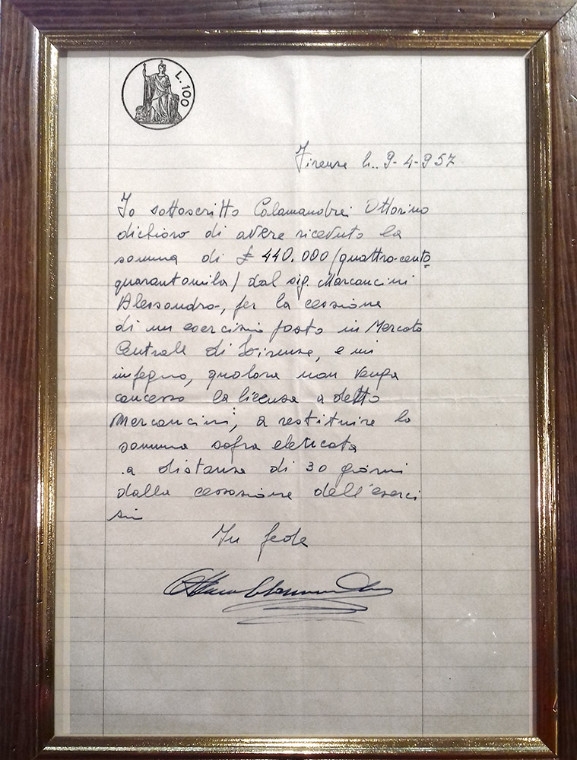 L. 100
Firenze li.. 9-4-957
Io sottoscritto Calamandrei Ottorino
dichiaro di avere ricevuto la
somma di £ 440.000 (quattrocento
quarantamila) dal sig. Marcancini
Alessandro, per la cessione
di un esercizio posto in Mercato
Centrale di Firenze, e mi
impegno, qualora non venga
concesso la licenza a detto
Mercancini, a restituire la
somma sopra elencata
a distanza di 30 giorni
dalla cessazione dell'eserci
In fede